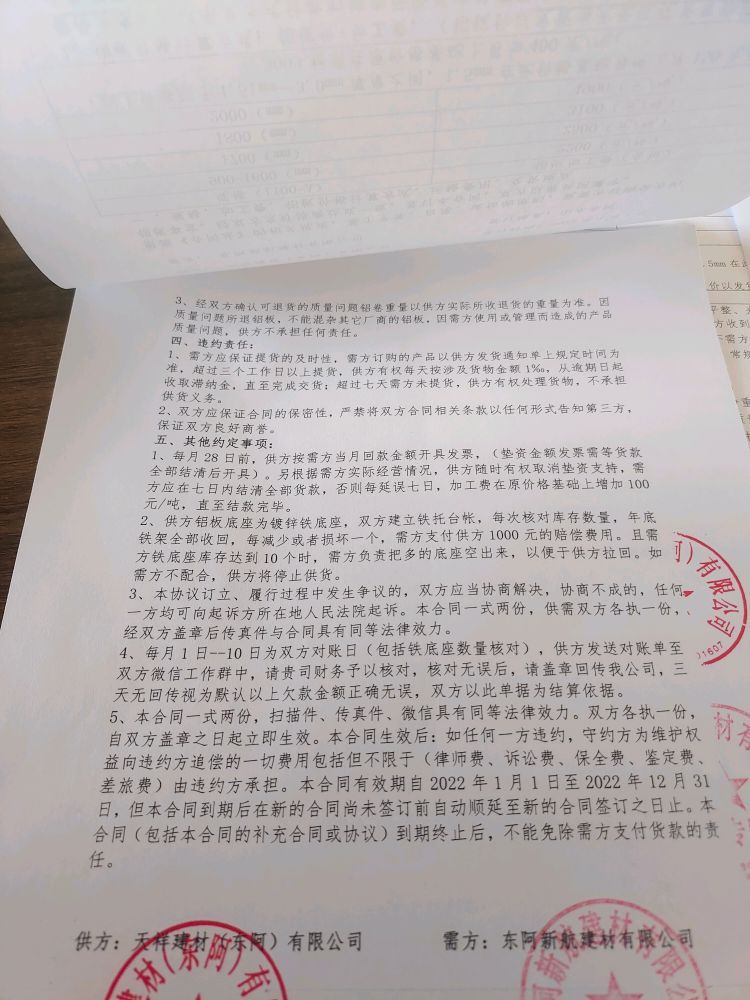 2000（mm）
1800（mm）
1700（mm）
3、经双方确认可退货的质量问题铝卷重量以供方实际所收退货的重量为准。因
质量问题所退铝板，不能混杂其它厂商的铝板，因需方使用或管理而造成的产品
质量问题，供方不承担任何责任。
四、违约责任：
1、需方应保证提货的及时性，需方订购的产品以供方发货通知单上规定时间为
准，超过三个工作日以上提货，供方有权每天按涉及货物金额1‰，从逾期日起
收取滞纳金，直至完成交货；超过七天需方未提货，供方有权处理货物，不承担
供货义务。
2、双方应保证合同的保密性，严禁将双方合同相关条款以任何形式告知第三方，
保证双方良好商誉。
五、其他约定事项：
1、每月28日前，供方按需方当月回款金额开具发票，（垫资金额发票需等货款
全部结清后开具）。另根据需方实际经营情况，供方随时有权取消垫资支持，需
方应在七日内结清全部货款，否则每延误七日，加工费在原价格基础上增加100
元/吨，直至结款完毕。
2、供方铝板底座为镀锌铁底座，双方建立铁托台帐，每次核对库存数量，年底
铁架全部收回，每减少或者损坏一个，需方支付供方1000元的赔偿费用。且需
方铁底座库存达到10个时，需方负责把多的底座空出来，以便于供方拉回。如
需方不配合，供方将停止供货。
3、本协议订立、履行过程中发生争议的，双方应当协商解决，协商不成的，任何
一方均可向起诉方所在地人民法院起诉。本合同一式两份，供需双方各执一份，
经双方盖章后传真件与合同具有同等法律效力。
4、每月1日--10日为双方对账日（包括铁底座数量核对），供方发送对账单至
双方微信工作群中，请贵司财务予以核对，核对无误后，请盖章回传我公司，三
天无回传视为默认以上欠款金额正确无误，双方以此单据为结算依据。
5、本合同一式两份，扫描件、传真件、微信具有同等法律效力。双方各执一份，
自双方盖章之日起立即生效。本合同生效后：如任何一方违约，守约方为维护权
益向违约方追偿的一切费用包括但不限于（律师费、诉讼费、保全费、鉴定费、
差旅费）由违约方承担。本合同有效期自2022年1月1日至2022年12月31
日，但本合同到期后在新的合同尚未签订前自动顺延至新的合同签订之日止。本
合同（包括本合同的补充合同或协议）到期终止后，不能免除需方支付货款的责
任。
供方：天祥建材（东阿）有限公司
需方：东阿新航建材有限公司
建材（东阿）有
阿新航建材有限公
）有限公司
1607
材有
5mm 在
价以发
平整、
方收到